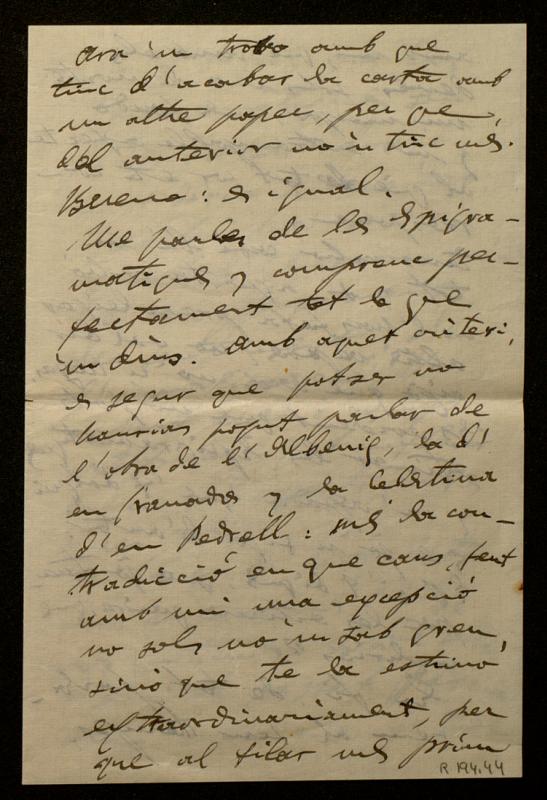 ara 'm trobo amb que
tinc d'acabar la carta amb
un altre paper, per que,
del anterior no 'n tinc més.
Bueno: es igual.
Me parles de les Epigra-
matiques y comprenc per-
fectament tot lo que
'm dius. Amb aquet criteri,
es segur que potser no
haurias pogut parlar de
l'obra de l'Albeniz, la d'
en Granados y la Celestina
d'en Pedrell: més la con-
tradicció en que caus, fent
amb mi una excepció
no sols no 'm sab greu,
sinó que te la estimo
extraordinariament, per
que al filar més prim
R. 194.44